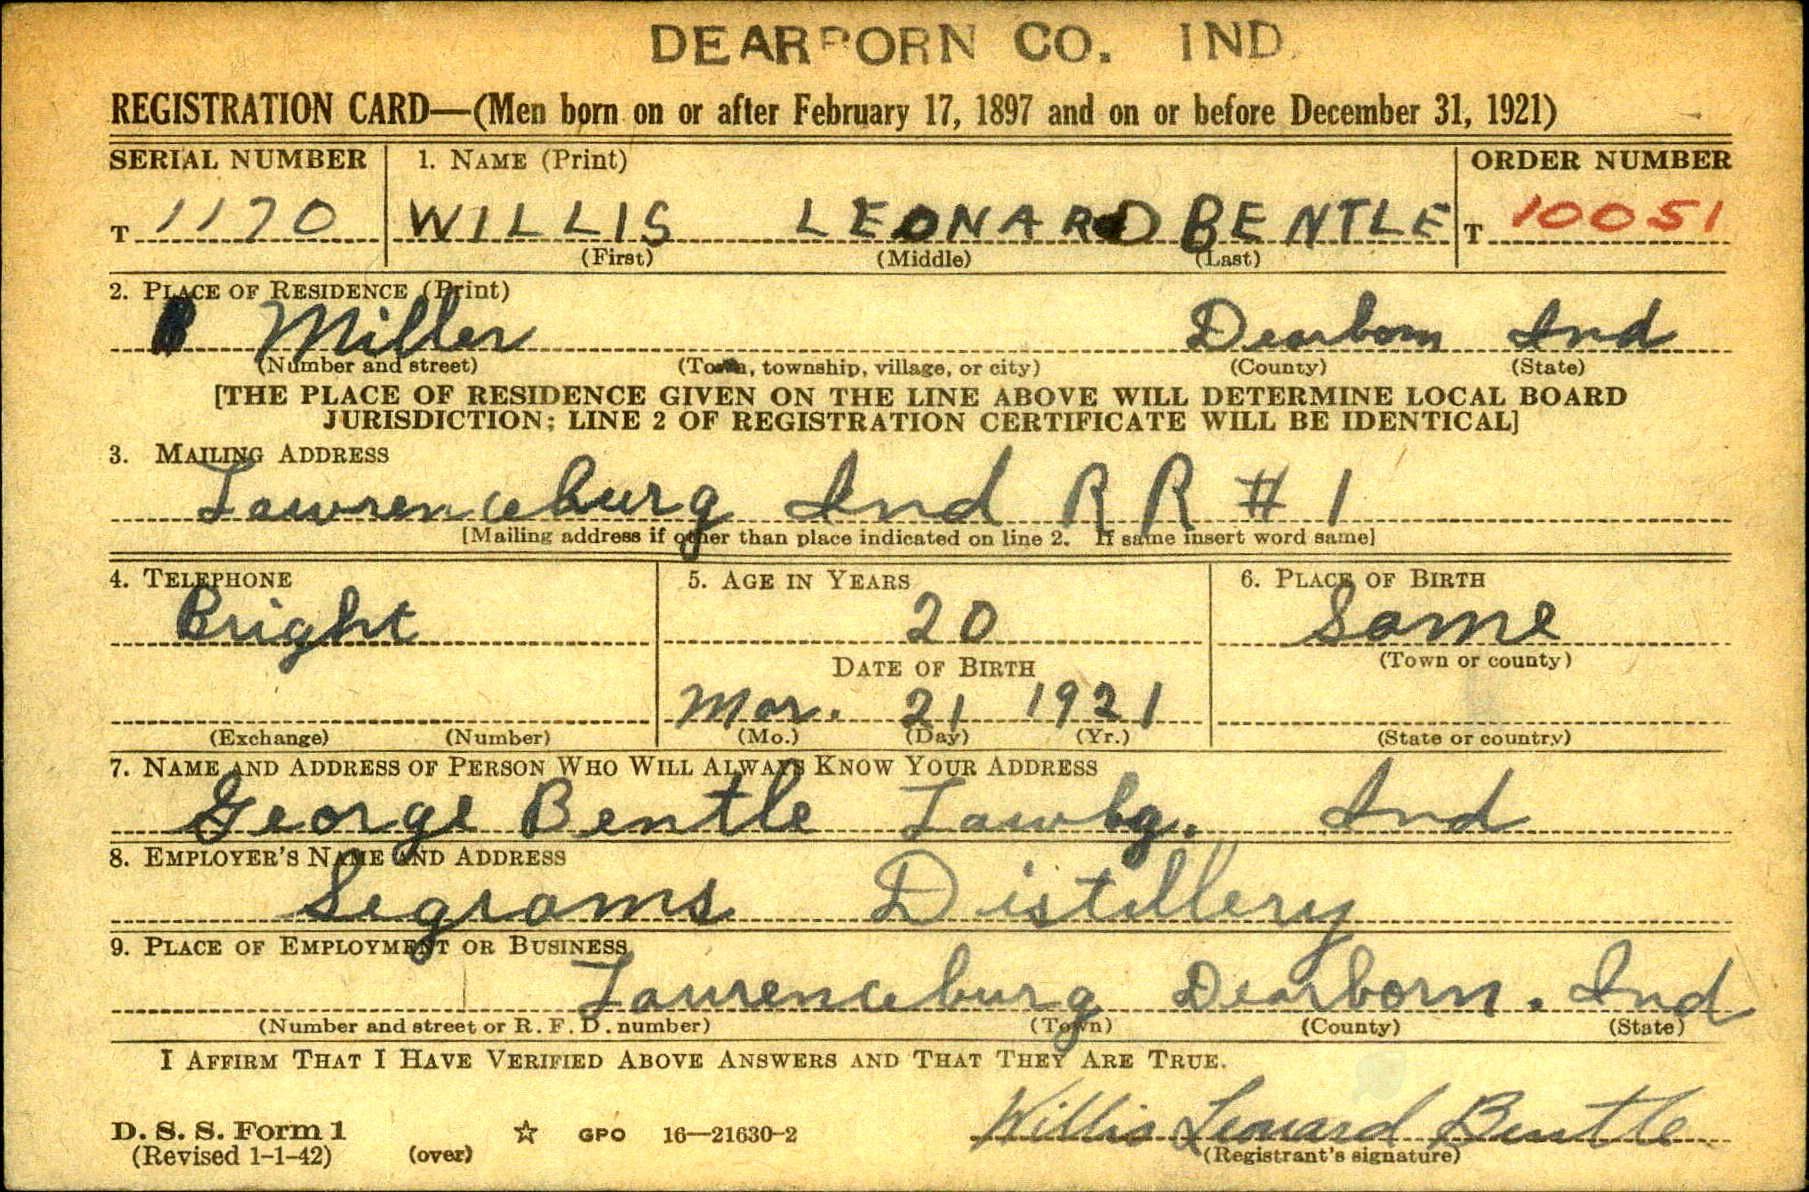 DEARBORN CO. IND.
REGISTRATION CARD—(Men born on or after February 17, 1897 and on or before December 31, 1921)
SERIAL NUMBER 1. NAME (Print) ORDER NUMBER
T 1170 WILLIS LEONARD BENTLE T 10051
(First) (Middle) (Last)
2. PLACE OF RESIDENCE (Print)
Miller Dearborn Ind
(Number and street) (Town, township, village, or city) (County) (State)
[THE PLACE OF RESIDENCE GIVEN ON THE LINE ABOVE WILL DETERMINE LOCAL BOARD
JURISDICTION; LINE 2 OF REGISTRATION CERTIFICATE WILL BE IDENTICAL]
3. MAILING ADDRESS
Lawrenceburg Ind R R # 1
[Mailing address if other than place indicated on line 2. If same insert word same]
4. TELEPHONE 5. AGE IN YEARS 6. PLACE OF BIRTH
Bright 20 Same
DATE OF BIRTH (Town or county)
Mar. 21 1921
(Exchange) (Number) (Mo.) (Day) (Yr.) (State or country)
7. NAME AND ADDRESS OF PERSON WHO WILL ALWAYS KNOW YOUR ADDRESS
George Bentle Lawbg. Ind
8. EMPLOYER'S NAME AND ADDRESS
Segrams Distillery
9. PLACE OF EMPLOYMENT OR BUSINESS
Lawrenceburg Dearborn. Ind
(Number and street or R. F. D. number) (Town) (County) (State)
I AFFIRM THAT I HAVE VERIFIED ABOVE ANSWERS AND THAT THEY ARE TRUE.
Willis Leonard Bentle
D. S. S. Form 1 ☆ GPO 16—21630-2
(Revised 1-1-42) (over) (Registrant's signature)